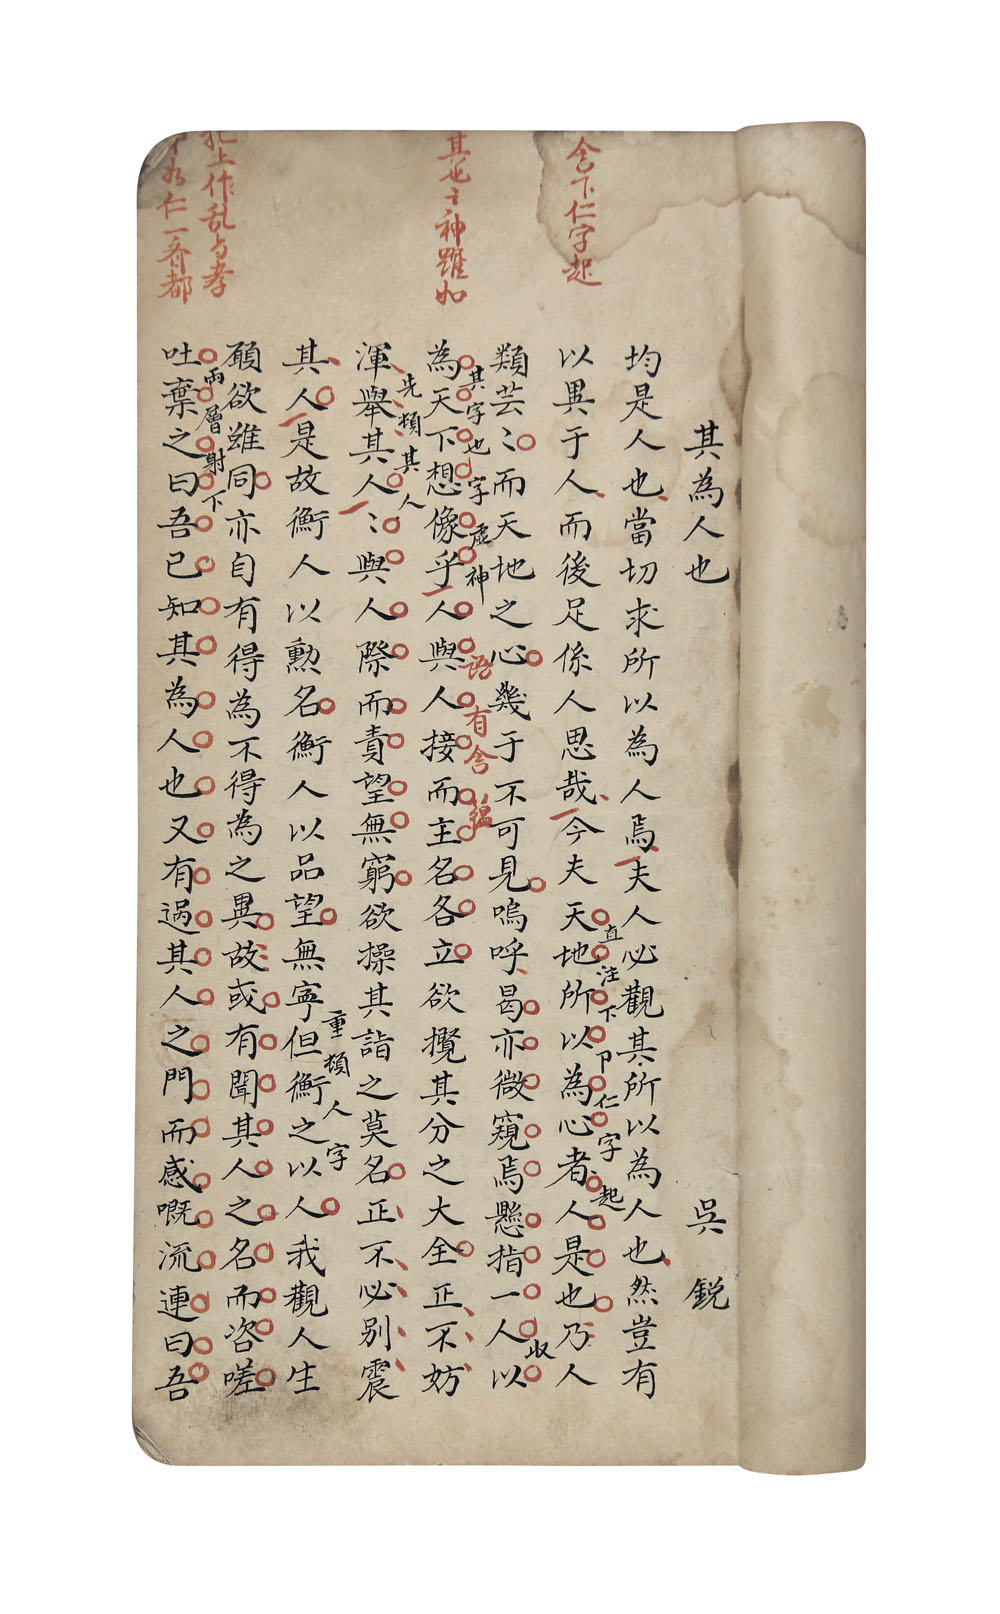 其為人也　吳銳
均是人也當切求所以為人焉夫人必觀其所以為人也然豈有
以異于人而後足係人思哉今夫天地所以為心者人是也乃人
類芸〻而天地之心幾于不可見嗚呼曷亦微窺焉懸指一人以
為天下想像乎人與人接而主名各立欲攬其分之大全正不妨
渾舉其人〻與人際而責望無窮欲操其詣之莫名正不必別震
其人是故衡人以勳名衡人以品望無寧但衡之以人我觀人生
頎欲雖同亦自有得為不得為之異故或有聞其人之名而咨嗟
吐棄之曰吾已知其為人也又有過其人之門而感嘅流連曰吾
含下仁字起
其也亠神躍如
犯上作亂与孝
仁一齊都
直注下卩仁字起
收
其字也字虛神
語有含蘊
先頓其人
重頓人字
兩層射下